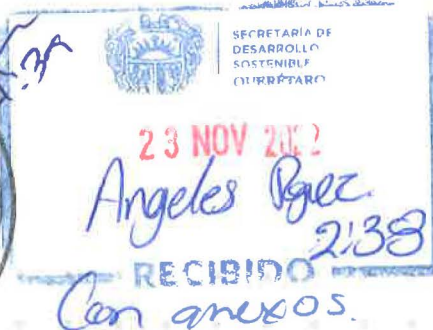 SECRETARÍA DE
DESARROLLO
SOSTENIBLE
QUERÉTARO
23 NOV
Angeles
2:38
RECIBIDO
Con anexos.